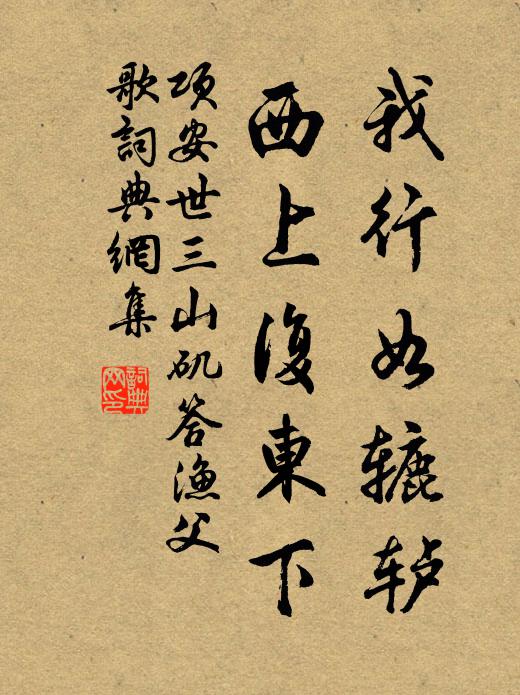 我行如辘轳
西上復東下
项安世三山矶答渔父
歌詞典網集
詞典
网印